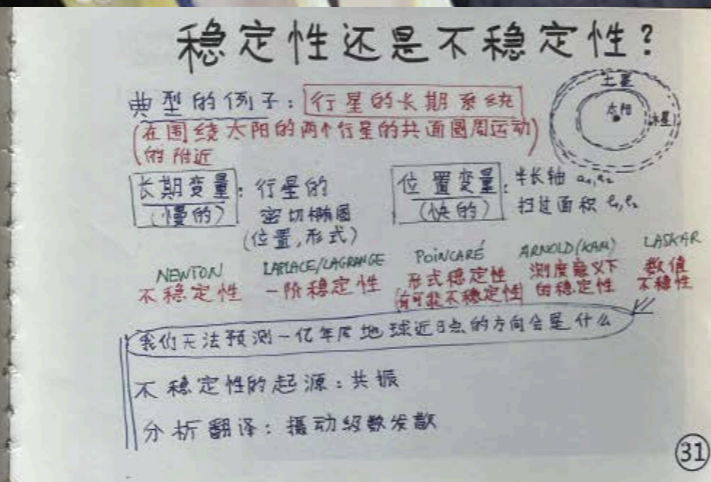 稳定性还是不稳定性?
典型的例子:行星的长期系统
(在围绕太阳的两个行星的共面圆周运动)
的附近
土星
太阳
木星
长期变量
(慢的)
:行星的
密切椭圆
(位置,形式)
位置变量
(快的)
:半长轴 a₁,a₂
扫过面积 ℓ₁,ℓ₂
NEWTON
不稳定性
LAPLACE/LAGRANGE
一阶稳定性
POINCARÉ
形式稳定性
(有可能不稳定性)
ARNOLD(KAM)
测度意义下
的稳定性
LASKAR
数值
不稳性
我们无法预测一亿年后地球近日点的方向会是什么
不稳定性的起源:共振
分析翻译:摄动级数发散
31